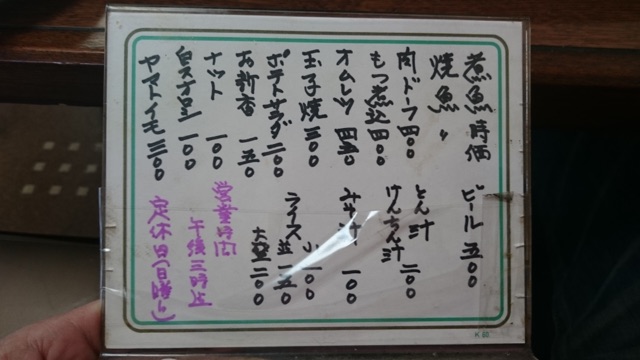 煮魚 時価
焼魚 〃
肉ドーフ 四〇〇
もつ煮込 四〇〇
オムレツ 四五〇
玉子焼 三〇〇
ポテトサラダ 二〇〇
お新香 一五〇
ナット 一〇〇
白スオロシ 一〇〇
ヤマトイモ 三〇〇
ビール 五〇〇
とん汁
けんちん汁 二〇〇
みそ汁 一〇〇
ライス 小 一〇〇
並 一五〇
大盛 二〇〇
営業時間
午後三時止
定休日(日曜日)
K 60